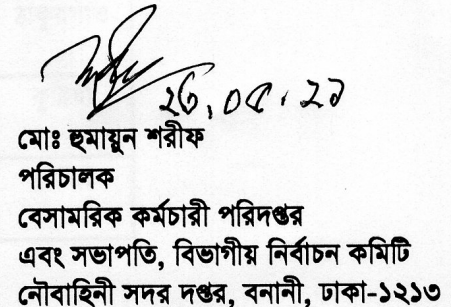 ২৬.০৫.২১
মোঃ হুমায়ুন শরীফ
পরিচালক
বেসামরিক কর্মচারী পরিদপ্তর
এবং সভাপতি, বিভাগীয় নির্বাচন কমিটি
নৌবাহিনী সদর দপ্তর, বনানী, ঢাকা-১২১৩